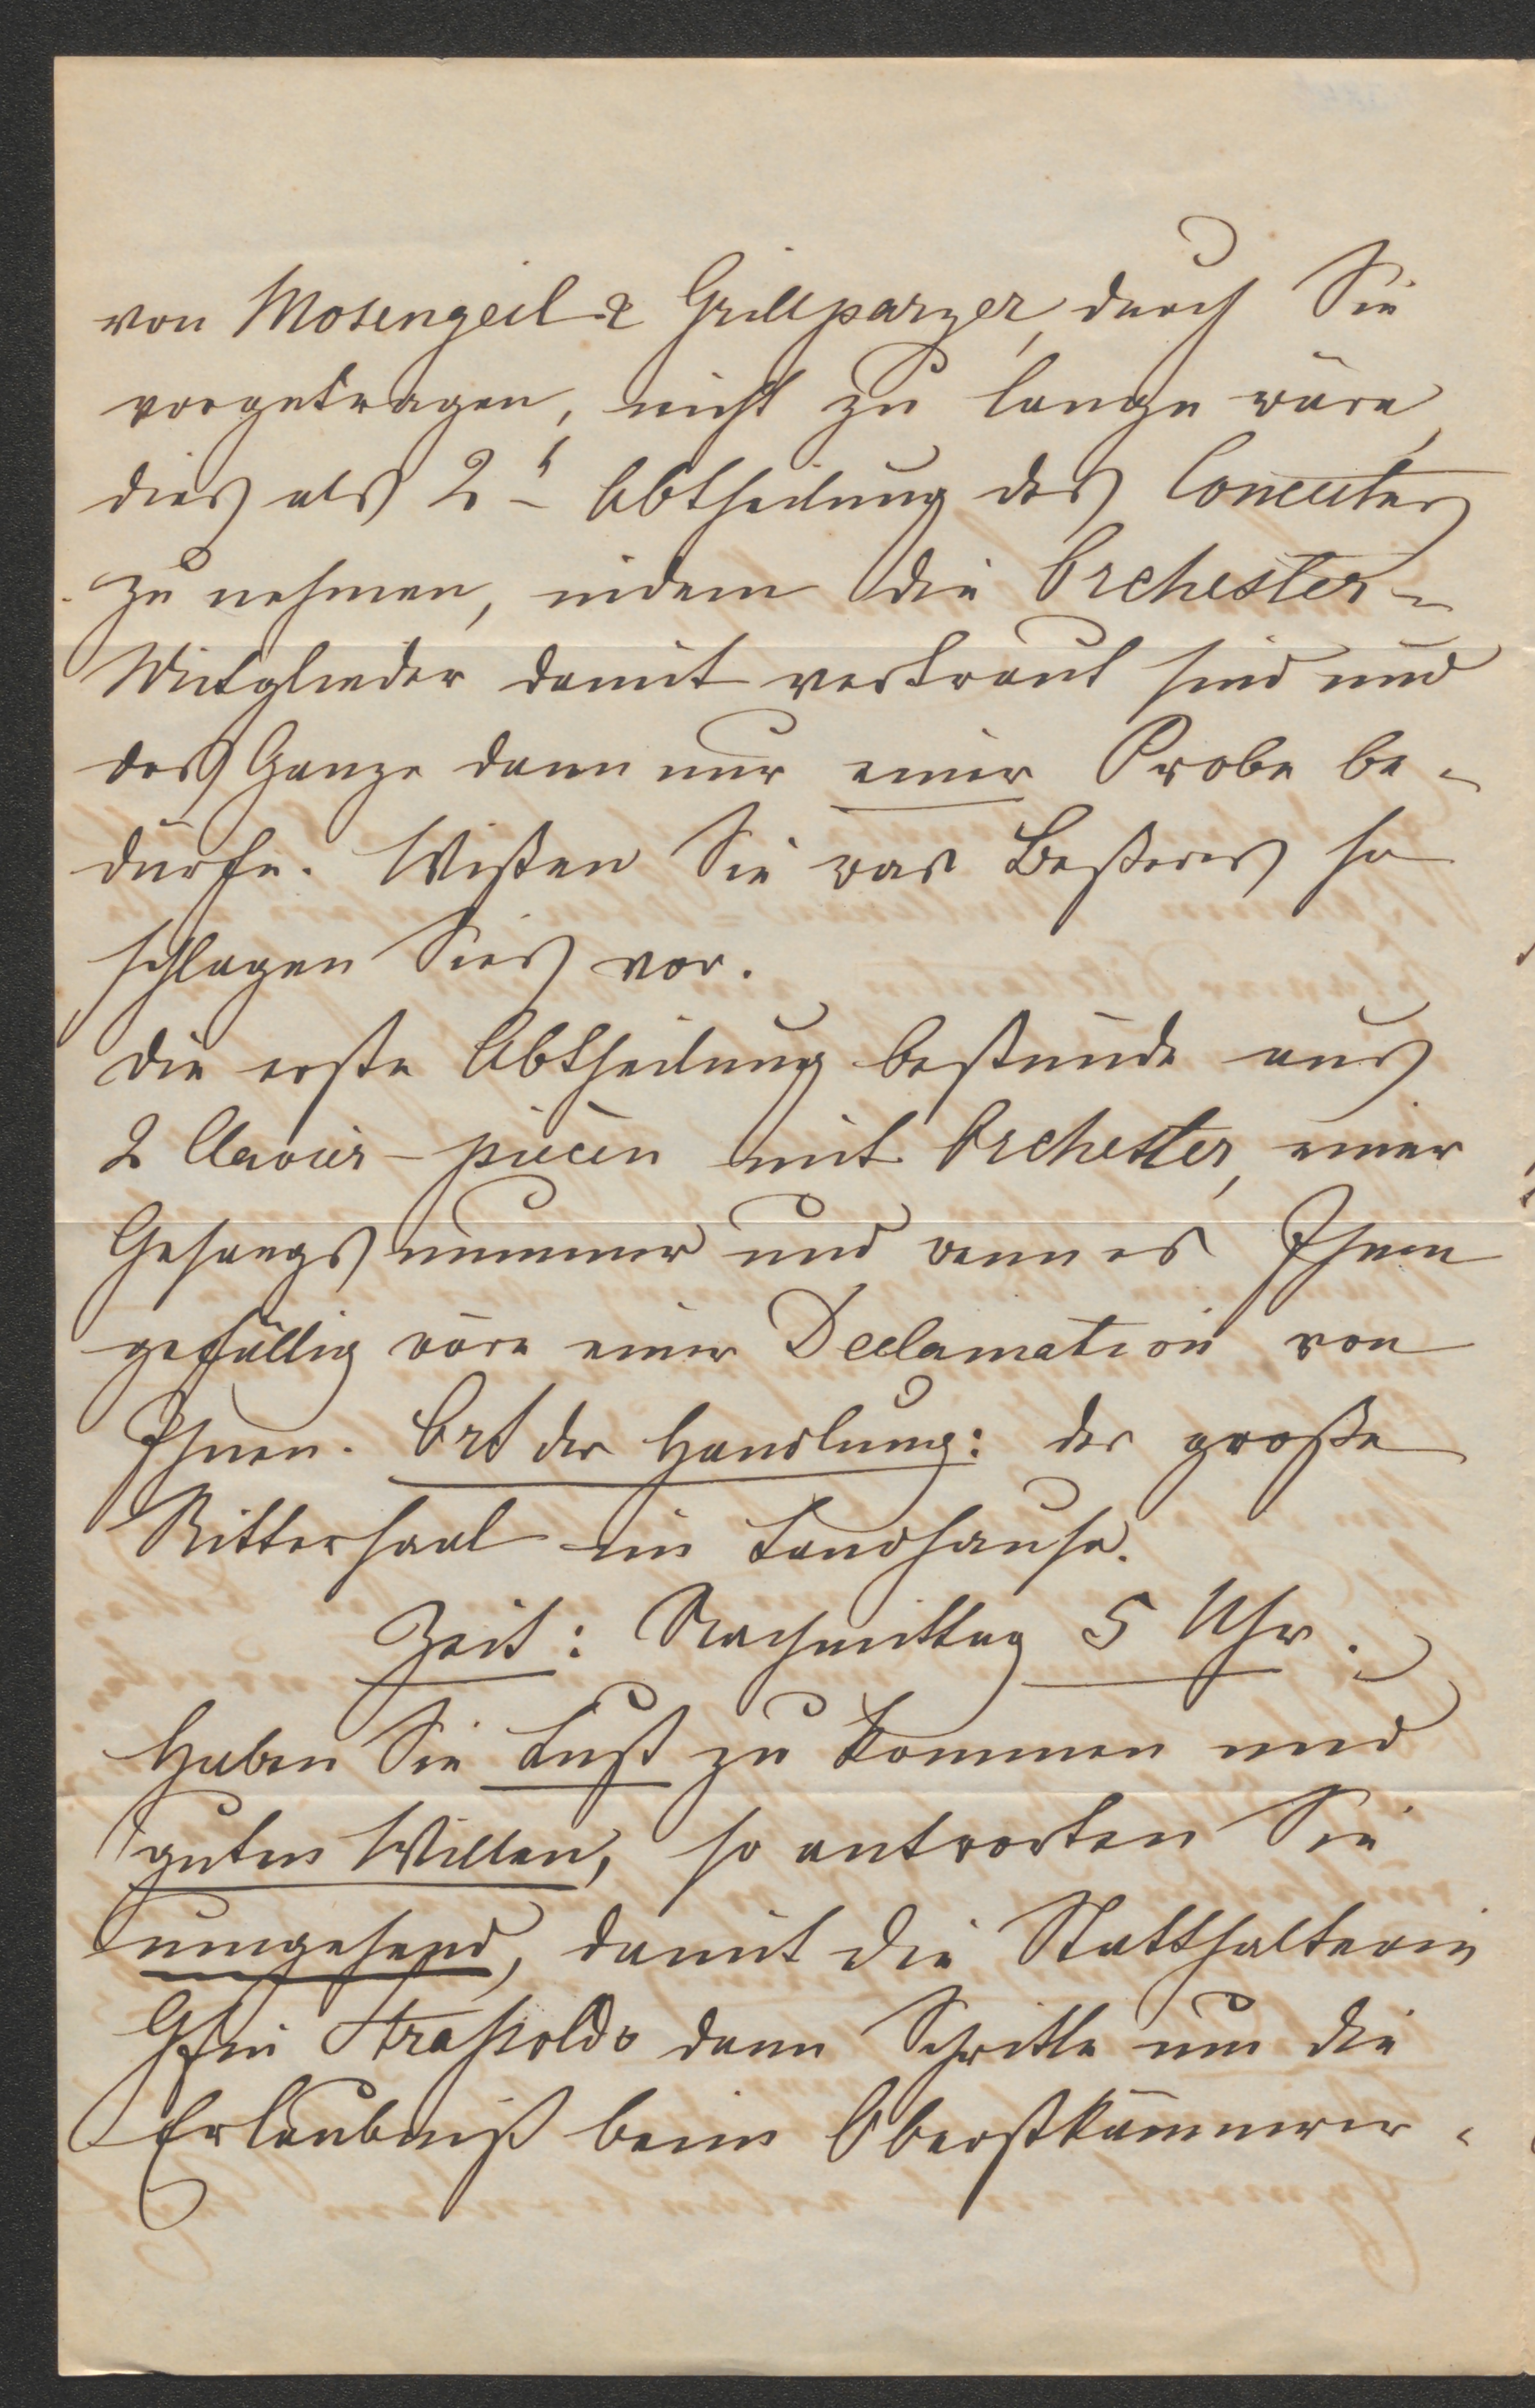 von Mosengeil & Grillparzer, durch Sie
vorgetragen, nicht zu lange wäre,
dies als 2t Abtheilung des Concertes
zu nehmen, indem die Orchester-
Mitglieder damit vertraut sind und
das Ganze dann nur einer Probe be-
dürfe. Wißen Sie was Beßeres so
schlagen Sies vor.
Die erste Abtheilung bestünde aus
2 Clavier-piècen mit Orchester, einer
Gesangsnummer und wenn es Ihnen
gefällig wäre einer Declamation von
Ihnen. Ort der Handlung: der große
Rittersaal im Landhause.
Zeit: Nachmittag 5 Uhr.
Haben Sie Lust zu kommen und
guten Willen, so antworten Sie
umgehend, damit die Statthalterin
Gfin Straßoldo dann Schritte um die
Erlaubniß beim Oberstkämmerer-